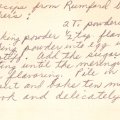 from Rumford b
2 T. powdere
king powder ½ tsp flav
ing powder into egg
tly. Add the sugar
ing until the meringu
flavoring. Pile in
and bake ten m
ook and delicately